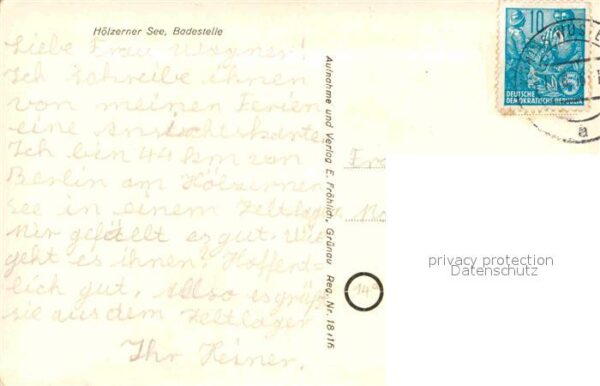 Hölzerner See, Badestelle
Liebe Frau Wegner!
Ich schreibe ihnen
von meinen Ferien
eine Ansichtskarte
Ich bin 44 km von
Berlin am Hölzernen
See in einem Zeltlager
Mir gefällt es gut. Wie
geht es ihnen? Hoffend-
lich gut, Also es grüßt
sie aus dem Zeltlager
Ihr Heiner.
Aufnahme und Verlag E. Fröhlich, Grünau Reg. Nr. 18 416
10
DEUTSCHE
DEMOKRATISCHE REPUBLIK
a
Fra
privacy protection
Datenschutz